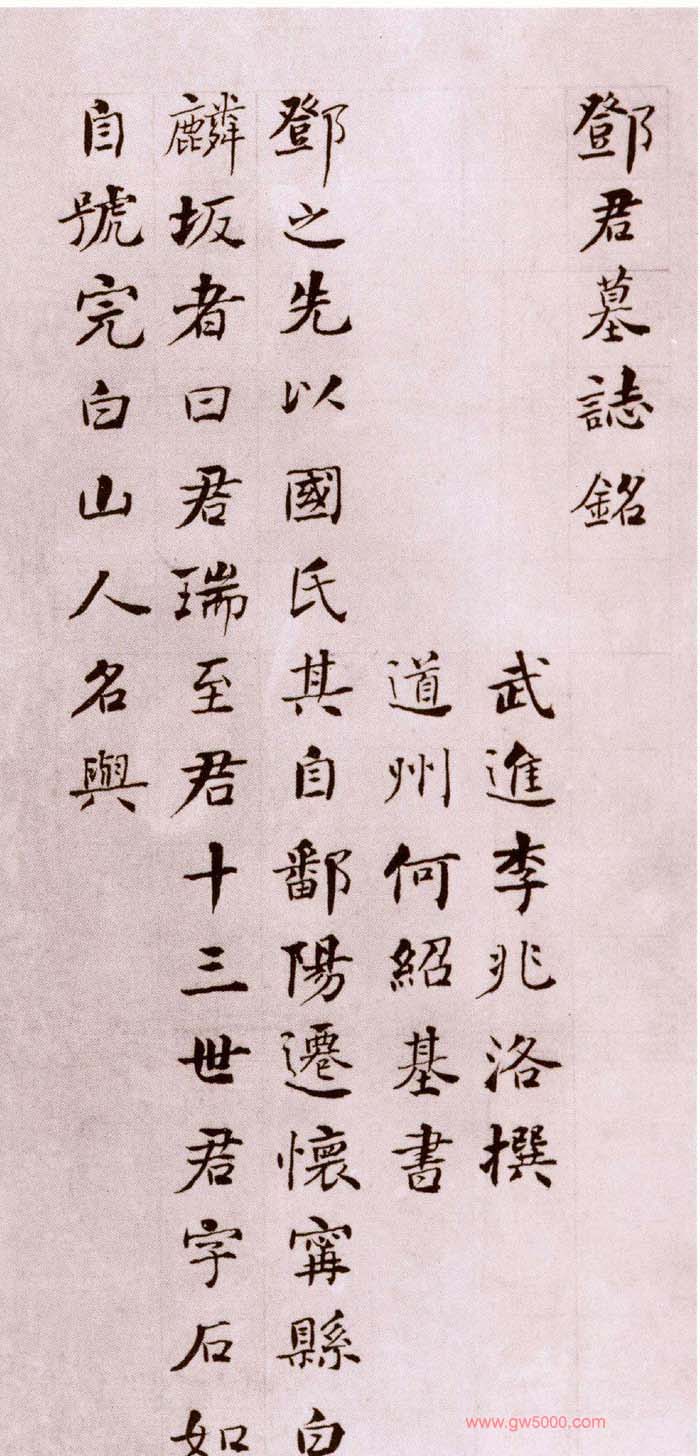 鄧君墓誌銘
武進李兆洛撰
道州何紹基書
鄧之先以國氏其自鄱陽遷懷甯縣白
麟坂者曰君瑞至君十三世君字石如
自號完白山人名與
www.gw5000.com